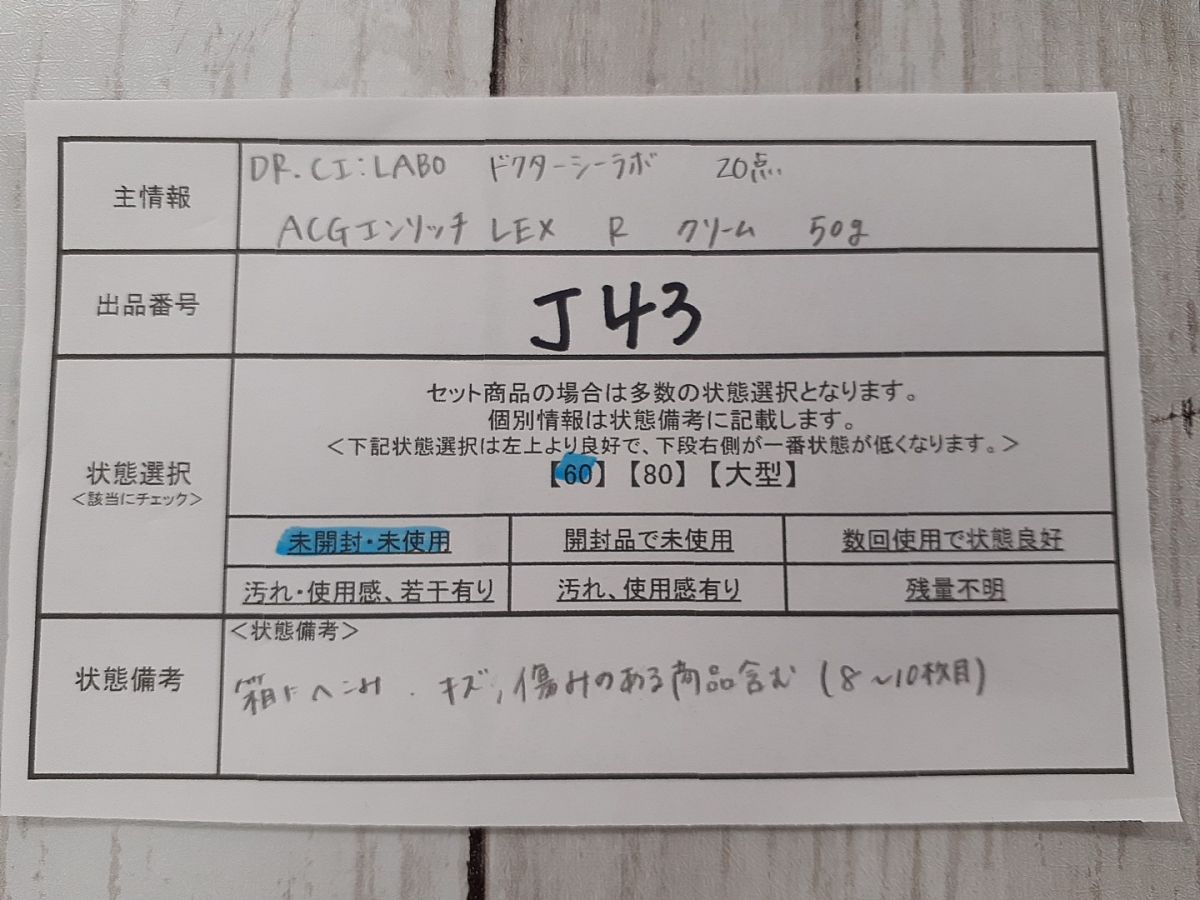 主情報
DR.CI:LABO ドクターシーラボ 20点
ACGエンリッチ LEX R クリーム 50g
出品番号
J43
状態選択
<該当にチェック>
セット商品の場合は多数の状態選択となります。
個別情報は状態備考に記載します。
<下記状態選択は左上より良好で、下段右側が一番状態が低くなります。>
【60】【80】【大型】
未開封・未使用 開封品で未使用 数回使用で状態良好
汚れ・使用感、若干有り 汚れ、使用感有り 残量不明
状態備考
<状態備考>
箱にヘこみ、キズ、傷みのある商品含む (8~10枚目)